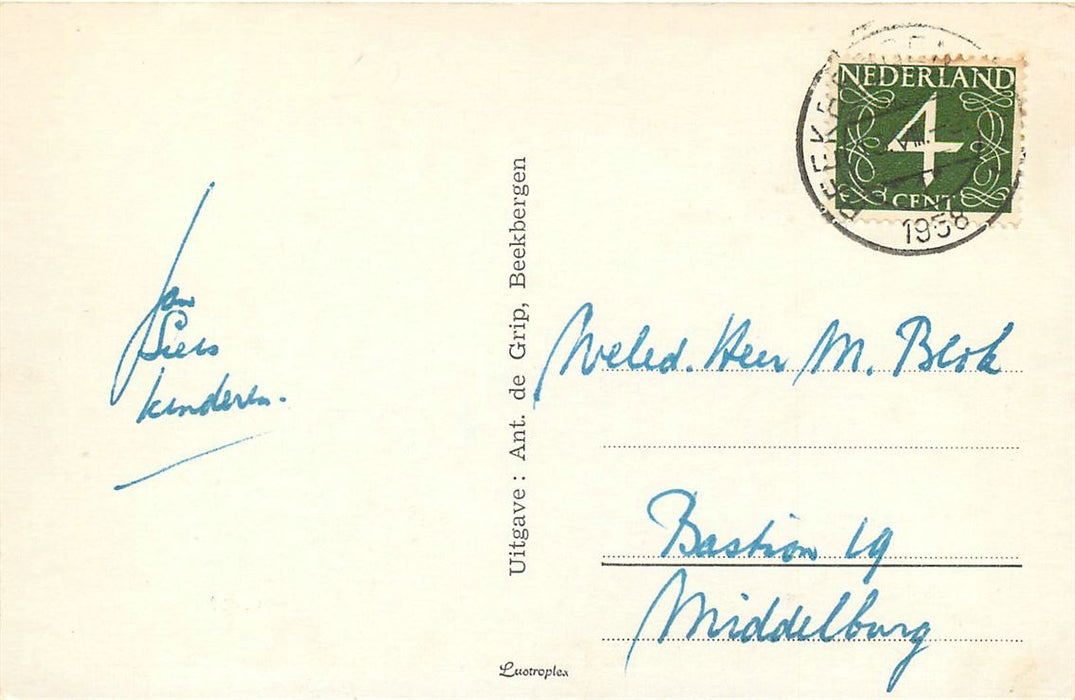 Jan
Siers
kinderen.
Uitgave: Ant. de Grip, Beekbergen
NEDERLAND
4
CENT
VIII
1958
Weled. Heer M. Blok
Bastion 19
Middelburg
Lustroplex